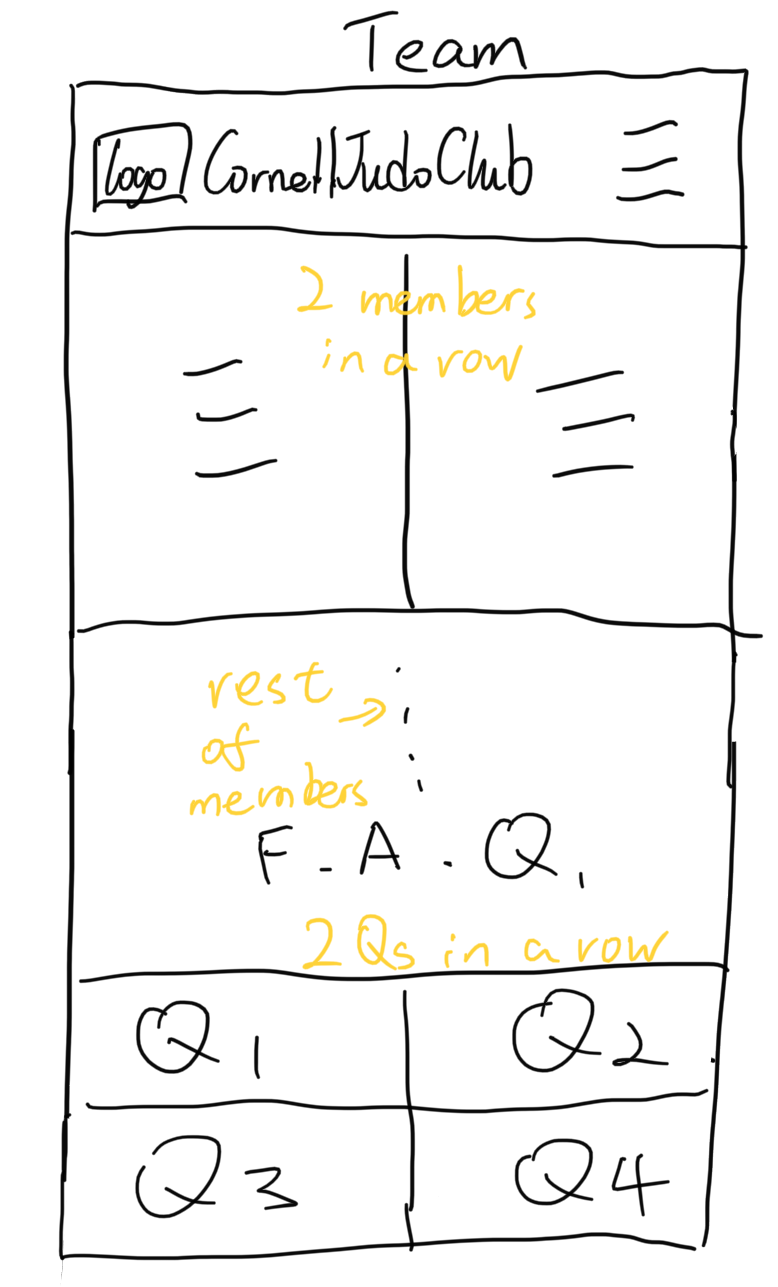 Team
Logo Cornell Judo Club
2 members
in a row
rest
of
members
F.A.Q.
2 Qs in a row
Q1 Q2
Q3 Q4